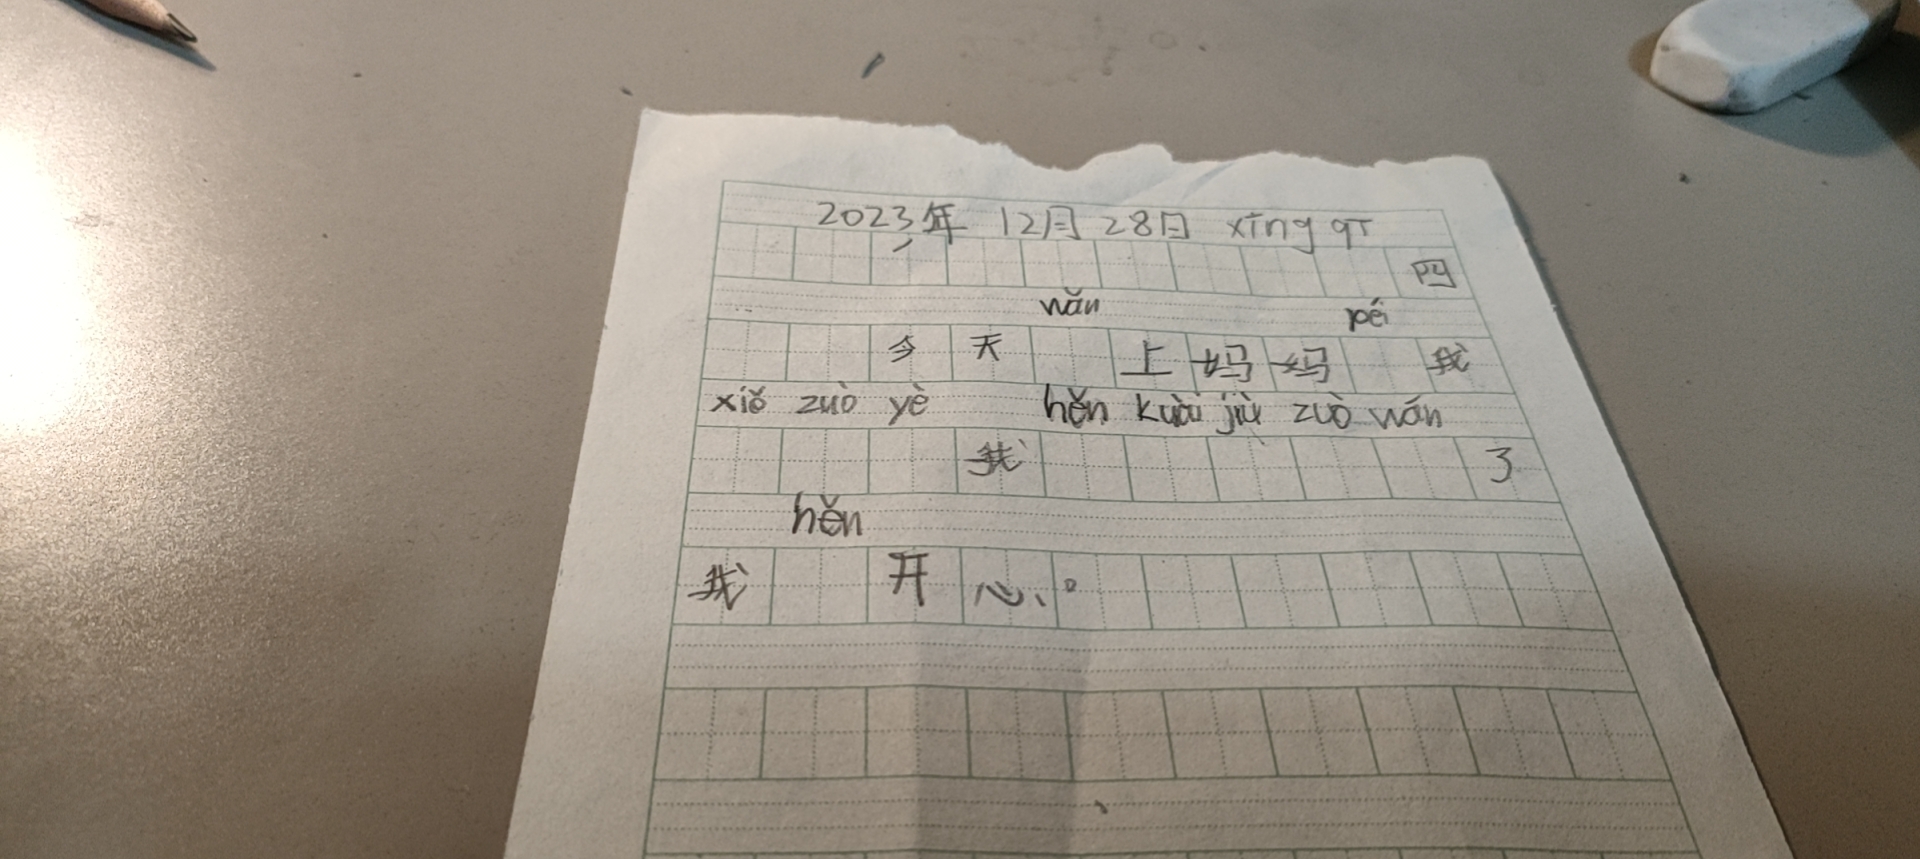 2023年 12月28日 xīng qī
四
wǎn péi
今天 上妈妈 我
xiě zuò yè hěn kuài jiù zuò wán
我 了
hěn
我 开心。